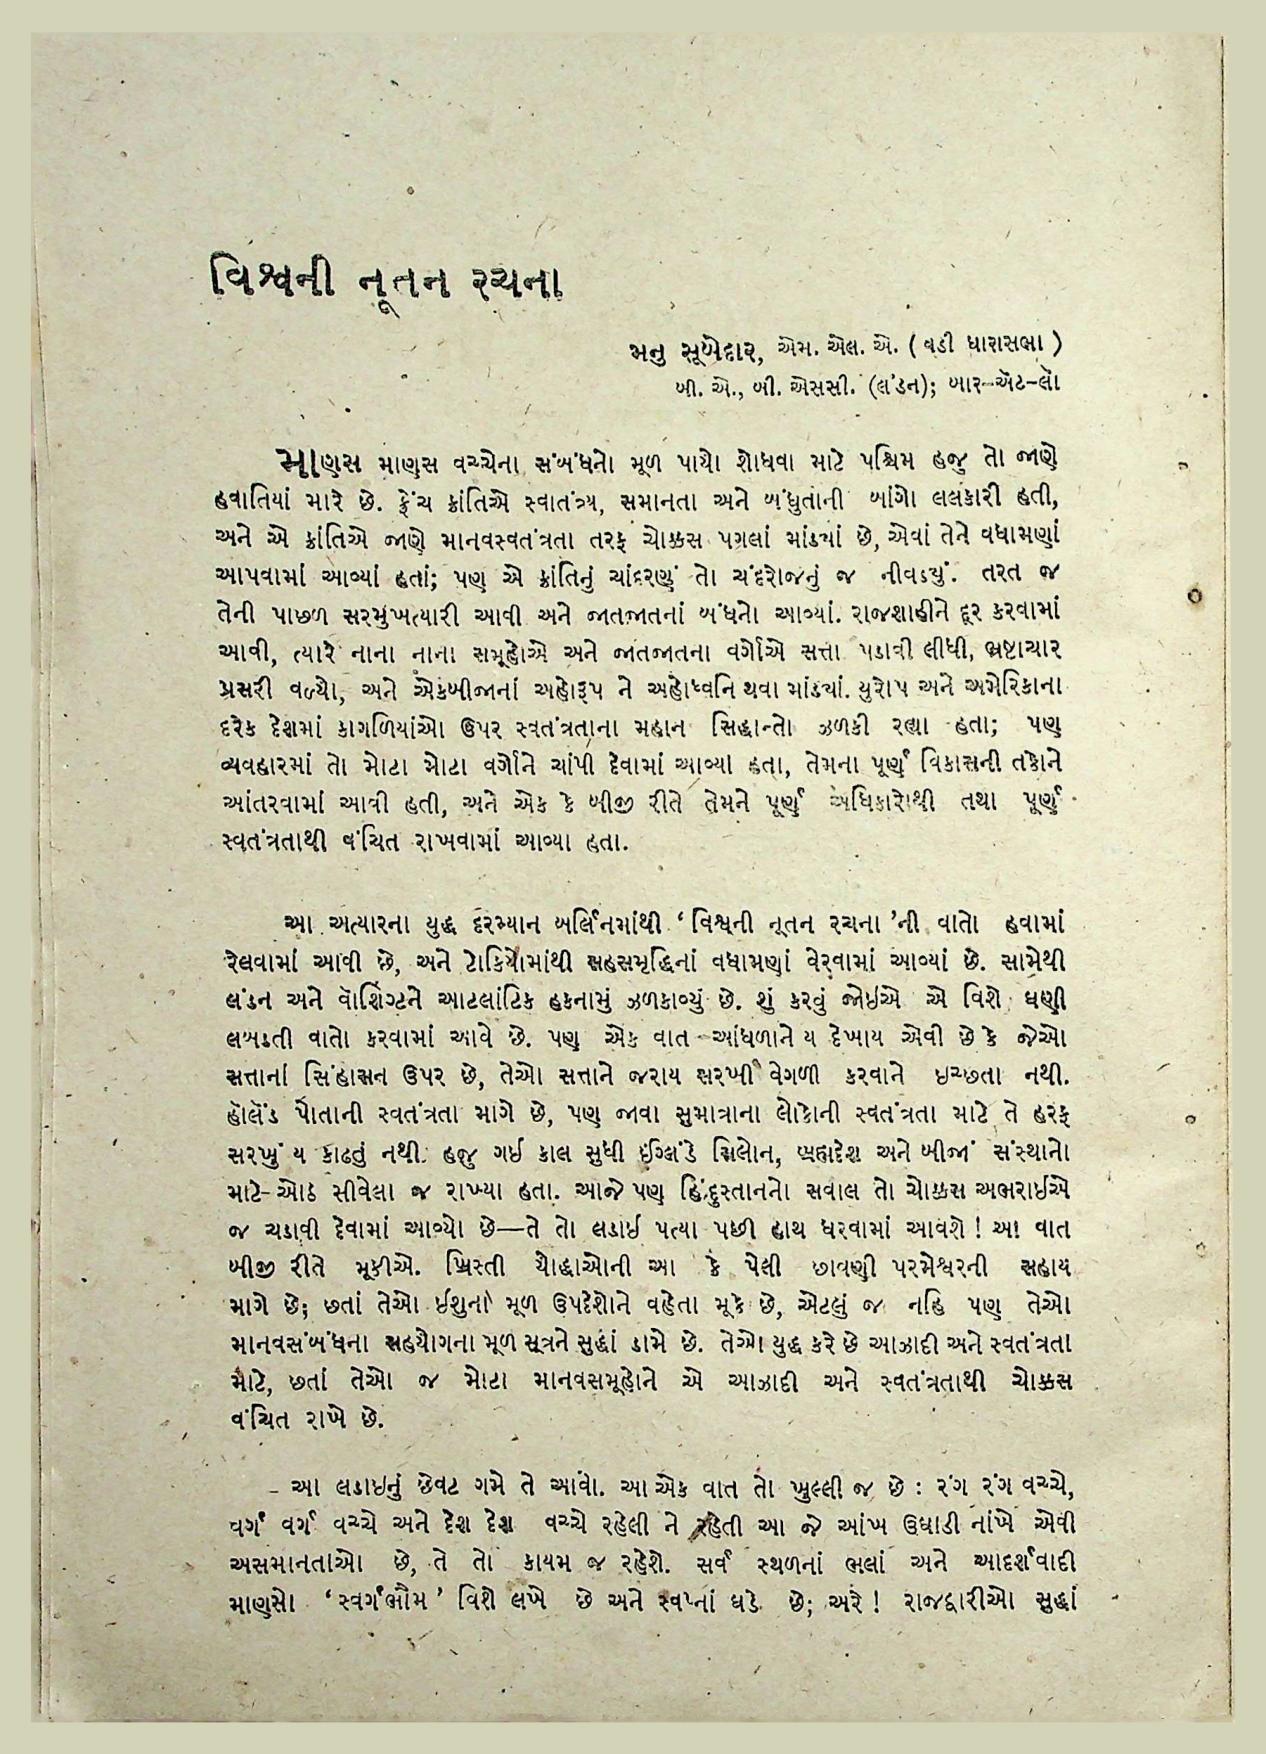 વિશ્વની નૂતન રચના
મનુ સૂબેદાર, એમ. એલ. એ. ( વડી ધારાસભા )
બી. એ., બી. એસસી. (લંડન); બાર-ઍટ-લૉ
માણસ માણસ વચ્ચેના સંબંધનો મૂળ પાયો શોધવા માટે પશ્ચિમ હજુ તો જાણે
હવાતિયાં મારે છે. ફ્રેંચ ક્રાંતિએ સ્વાતંત્ર્ય, સમાનતા અને બંધુતાની બાંગો લલકારી હતી,
અને એ ક્રાંતિએ જાણે માનવસ્વતંત્રતા તરફ ચોક્કસ પગલાં માંડ્યાં છે, એવાં તેને વધામણાં
આપવામાં આવ્યાં હતાં; પણ એ ક્રાંતિનું ચાંદરણું તો ચંદરોજનું જ નીવડ્યું. તરત જ
તેની પાછળ સરમુખત્યારી આવી અને જાતજાતનાં બંધનો આવ્યાં. રાજશાહીને દૂર કરવામાં
આવી, ત્યારે નાના નાના સમૂહોએ અને જાતજાતના વર્ગોએ સત્તા પડાવી લીધી, ભ્રષ્ટાચાર
પ્રસરી વળ્યો, અને એકબીજાનાં અહોરૂપ ને અહોધ્વનિ થવા માંડ્યાં. યુરોપ અને અમેરિકાના
દરેક દેશમાં કાગળિયાંઓ ઉપર સ્વતંત્રતાના મહાન સિદ્ધાન્તો ઝળકી રહ્યા હતા; પણ
વ્યવહારમાં તો મોટા મોટા વર્ગોને ચાંપી દેવામાં આવ્યા હતા, તેમના પૂર્ણ વિકાસની તકોને
આંતરવામાં આવી હતી, અને એક કે બીજી રીતે તેમને પૂર્ણ અધિકારોથી તથા પૂર્ણ
સ્વતંત્રતાથી વંચિત રાખવામાં આવ્યા હતા.
આ અત્યારના યુદ્ધ દરમ્યાન બર્લિનમાંથી ‘ વિશ્વની નૂતન રચના ’ની વાતો હવામાં
રેલવામાં આવી છે, અને ટોકિયોમાંથી સહસમૃદ્ધિનાં વધામણાં વેરવામાં આવ્યાં છે. સામેથી
લંડન અને વૉશિંગ્ટને આટલાંટિક હકનામું ઝળકાવ્યું છે. શું કરવું જોઇએ એ વિશે ઘણી
લખડતી વાતો કરવામાં આવે છે. પણ એક વાત આંધળાને ય દેખાય એવી છે કે જેઓ
સત્તાનાં સિંહાસન ઉપર છે, તેઓ સત્તાને જરાય સરખી વેગળી કરવાને ઇચ્છતા નથી.
હૉલેંડ પોતાની સ્વતંત્રતા માગે છે, પણ જાવા સુમાત્રાના લોકોની સ્વતંત્રતા માટે તે હરફ
સરખું ય કાઢતું નથી. હજુ ગઇ કાલ સુધી ઈંગ્લંડે સિલોન, બ્રહ્મદેશ અને બીજાં સંસ્થાનો
માટે ઓઠ સીવેલા જ રાખ્યા હતા. આજે પણ હિંદુસ્તાનનો સવાલ તો ચોક્કસ અભરાઈએ
જ ચડાવી દેવામાં આવ્યો છે—તે તો લડાઇ પત્યા પછી હાથ ધરવામાં આવશે ! આ વાત
બીજી રીતે મૂકીએ. ખ્રિસ્તી યોદ્ધાઓની આ કે પેલી છાવણી પરમેશ્વરની સહાય
માગે છે; છતાં તેઓ ઈશુના મૂળ ઉપદેશોને વહેતા મૂકે છે, એટલું જ નહિ પણ તેઓ
માનવસંબંધના સહયોગના મૂળ સૂત્રને સુદ્ધાં ડામે છે. તેઓ યુદ્ધ કરે છે આઝાદી અને સ્વતંત્રતા
માટે, છતાં તેઓ જ મોટા માનવસમૂહોને એ આઝાદી અને સ્વતંત્રતાથી ચોક્કસ
વંચિત રાખે છે.
આ લડાઇનું છેવટ ગમે તે આવો. આ એક વાત તો ખુલ્લી જ છે : રંગ રંગ વચ્ચે,
વર્ગ વર્ગ વચ્ચે અને દેશ દેશ વચ્ચે રહેલી ને રહેતી આ જે આંખ ઉઘાડી નાંખે એવી
અસમાનતાઓ છે, તે તો કાયમ જ રહેશે. સર્વ સ્થળનાં ભલાં અને આદર્શવાદી
માણસો ‘સ્વર્ગભૌમ’ વિશે લખે છે અને સ્વપ્નાં ઘડે છે; અરે ! રાજદ્વારીઓ સુદ્ધાં